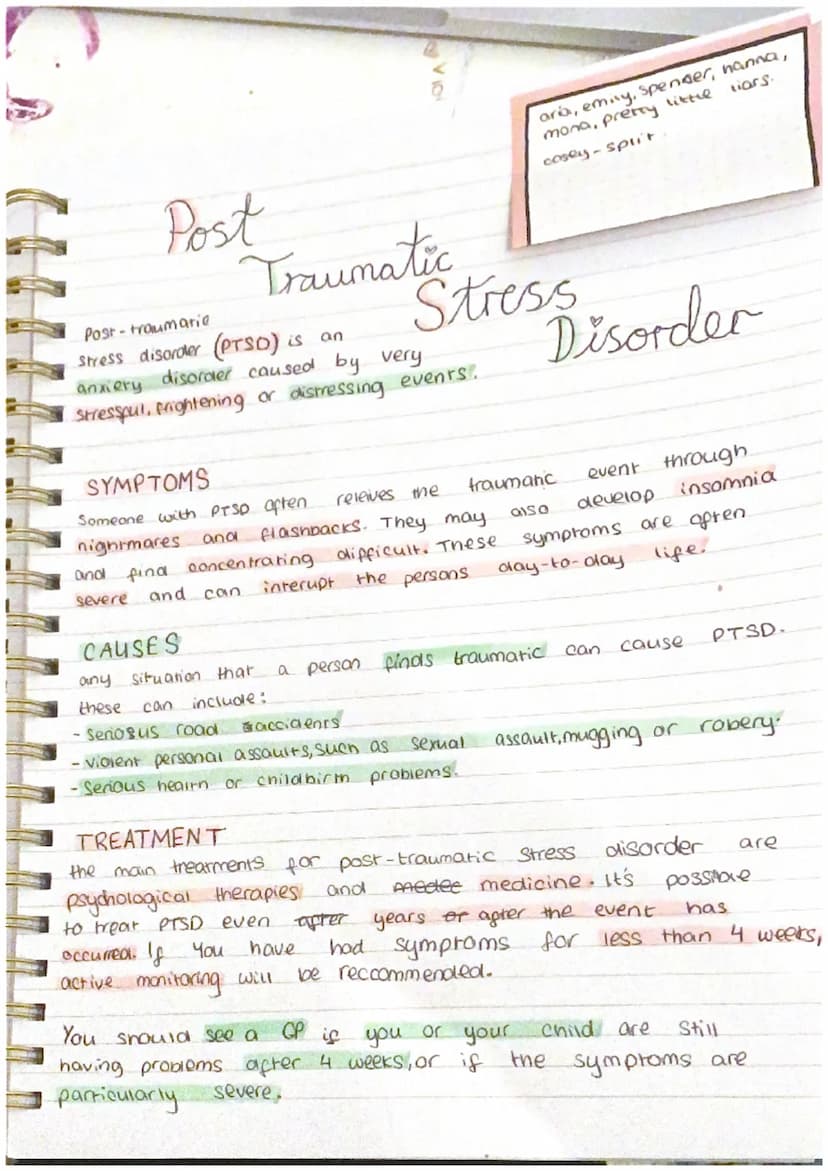 aria, emily, spencer, hanna,
mona, pretty little liars.
casey - split.
Post
Traumatic
Stress
Disorder
Post-traumatic
stress disorder (PTSD) is an
anxiety disorder caused by very
stressful, frightening or distressing events.
SYMPTOMS
Someone with PTSD often releives the traumatic event through
nightmares and flashbacks. They may also develop insomnia
and find concentrating difficult. These symptoms are often
severe and can interupt the persons day-to-day life.
CAUSES
any situation that a person finds traumatic can cause PTSD.
these can include:
- Serious road accidents
- violent personal assaults, such as sexual assault, mugging or robery.
- Serious health or childbirth problems.
TREATMENT
the main treatments for post-traumatic stress disorder are
psychological therapies and medicine. It's possible
to treat PTSD even after years or after the event has
occurred. If you have had symptoms for less than 4 weeks,
active monitoring will be reccommended.
You should see a GP if you or your child are still
having problems after 4 weeks, or if the symptoms are
particularly severe.